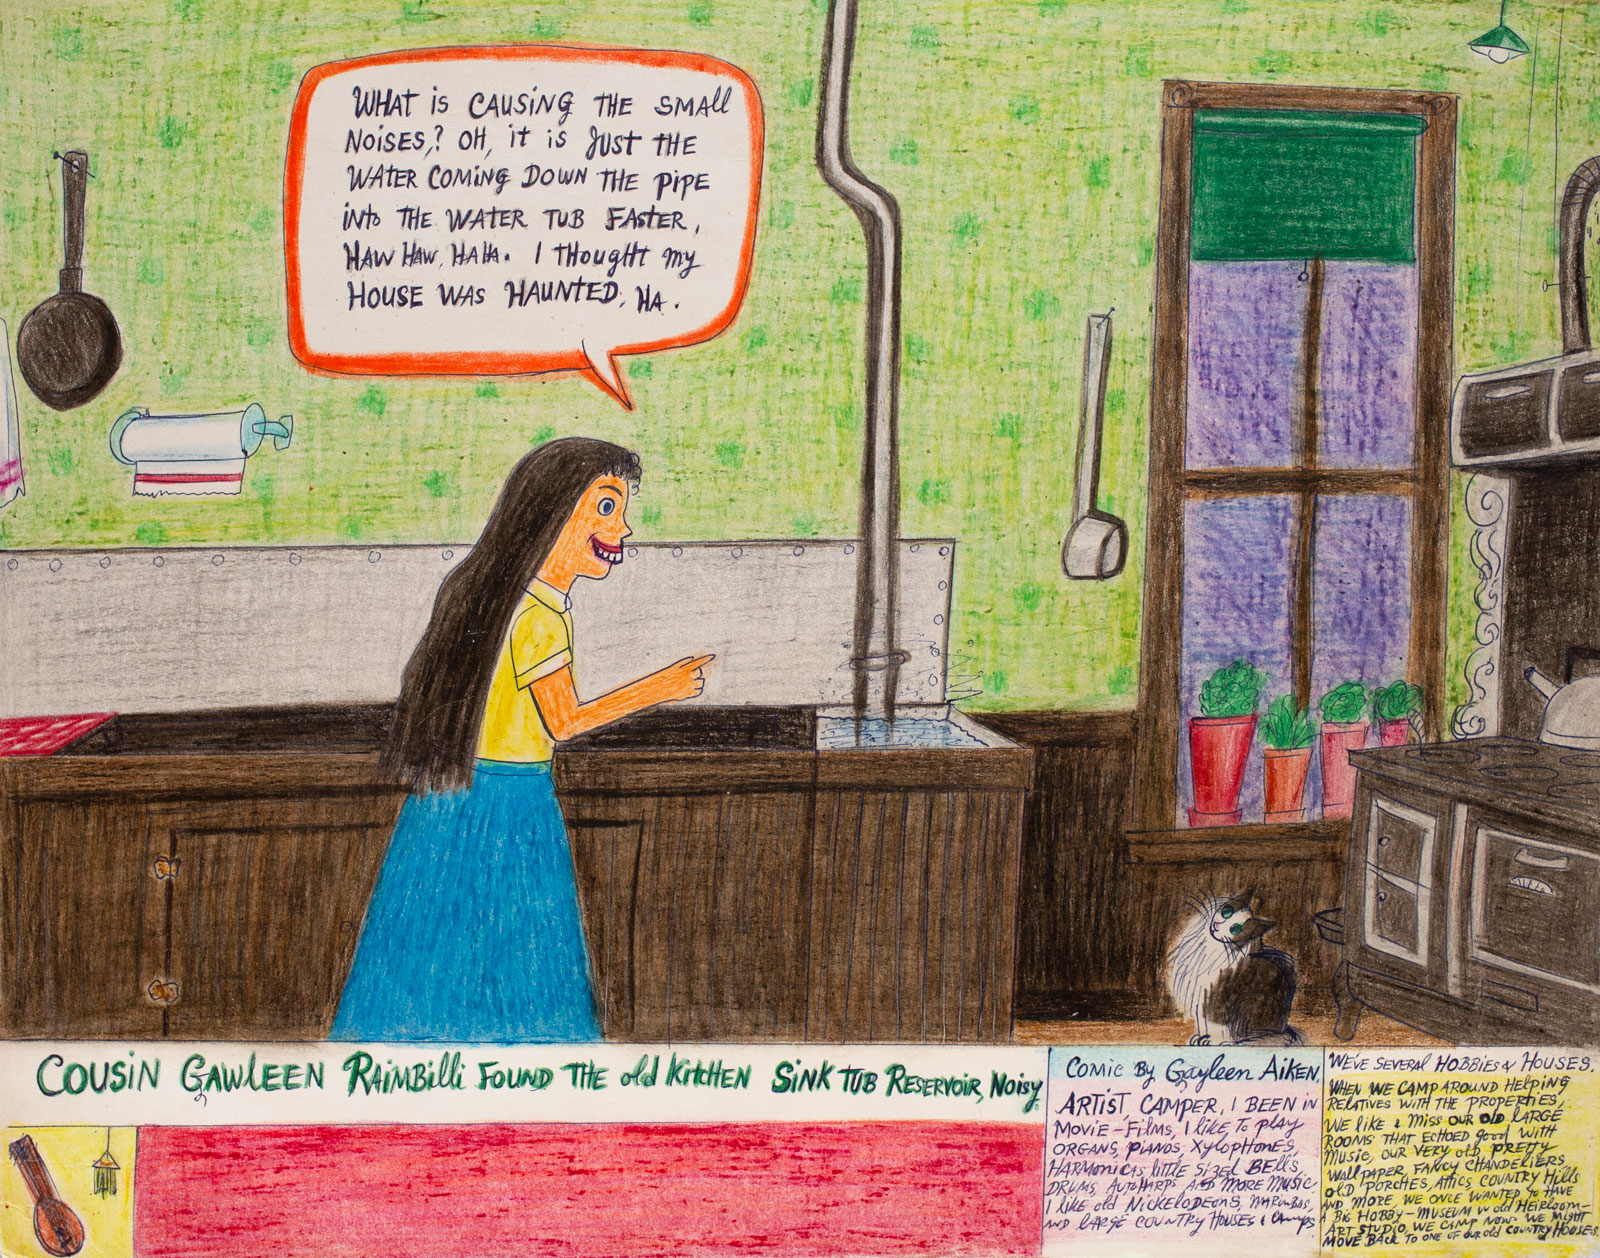 WHAT iS CAUSiNG THE SMAll
NOiSES,? OH, iT iS JUST THE
WATER COMiNG DOWN THE PiPE
iNto THE WATER TUB FASTER,
HAW HAW, HA HA. I THOUGHT My
HOUSE WAS HAUNTED, HA.
COUSiN GAWLEEN RAiMBilli FOUND THE old KiTCHEN SiNK TUB RESERVOiR, NOiSy
COMiC By GAyleen AiKEN.
ARTiST, CAMPER, I BEEN iN
MOViE-FilMS, I liKE, TO PlAy
ORGANS, PiANOS, XylOPHONES,
HARMONiCAS, liTTlE SiZED BEllS,
DRUMS, AUTOHARPS AND MORE MUSiC.
I liKE old NiCKElODEONS, MARiMBAS,
AND lARGE COUNTRy HOUSES & CAMPS.
WE'VE SEVERAL HOBBiES & HOUSES.
WHEN WE CAMP AROUND HElPiNG
RElATiVES WiTH THE PROPERTiES,
WE liKE & MiSS OUR OlD lARGE
ROOMS THAT ECHOED good WiTH
MUSiC, OUR VERy Old PRETTy
WAllPAPER, FANCy CHANDEliERS,
OlD PORCHES, ATTiCS, COUNTRy Hills
AND MORE. WE ONCE WANTED TO HAVE
A BiG HOBBy-MUSEUM IN old HEiRlOOM-
ART STUDiO. WE CAMP NOW. WE MiGHT
MOVE BACK TO ONE OF OUR old COUNTRy HOUSES.